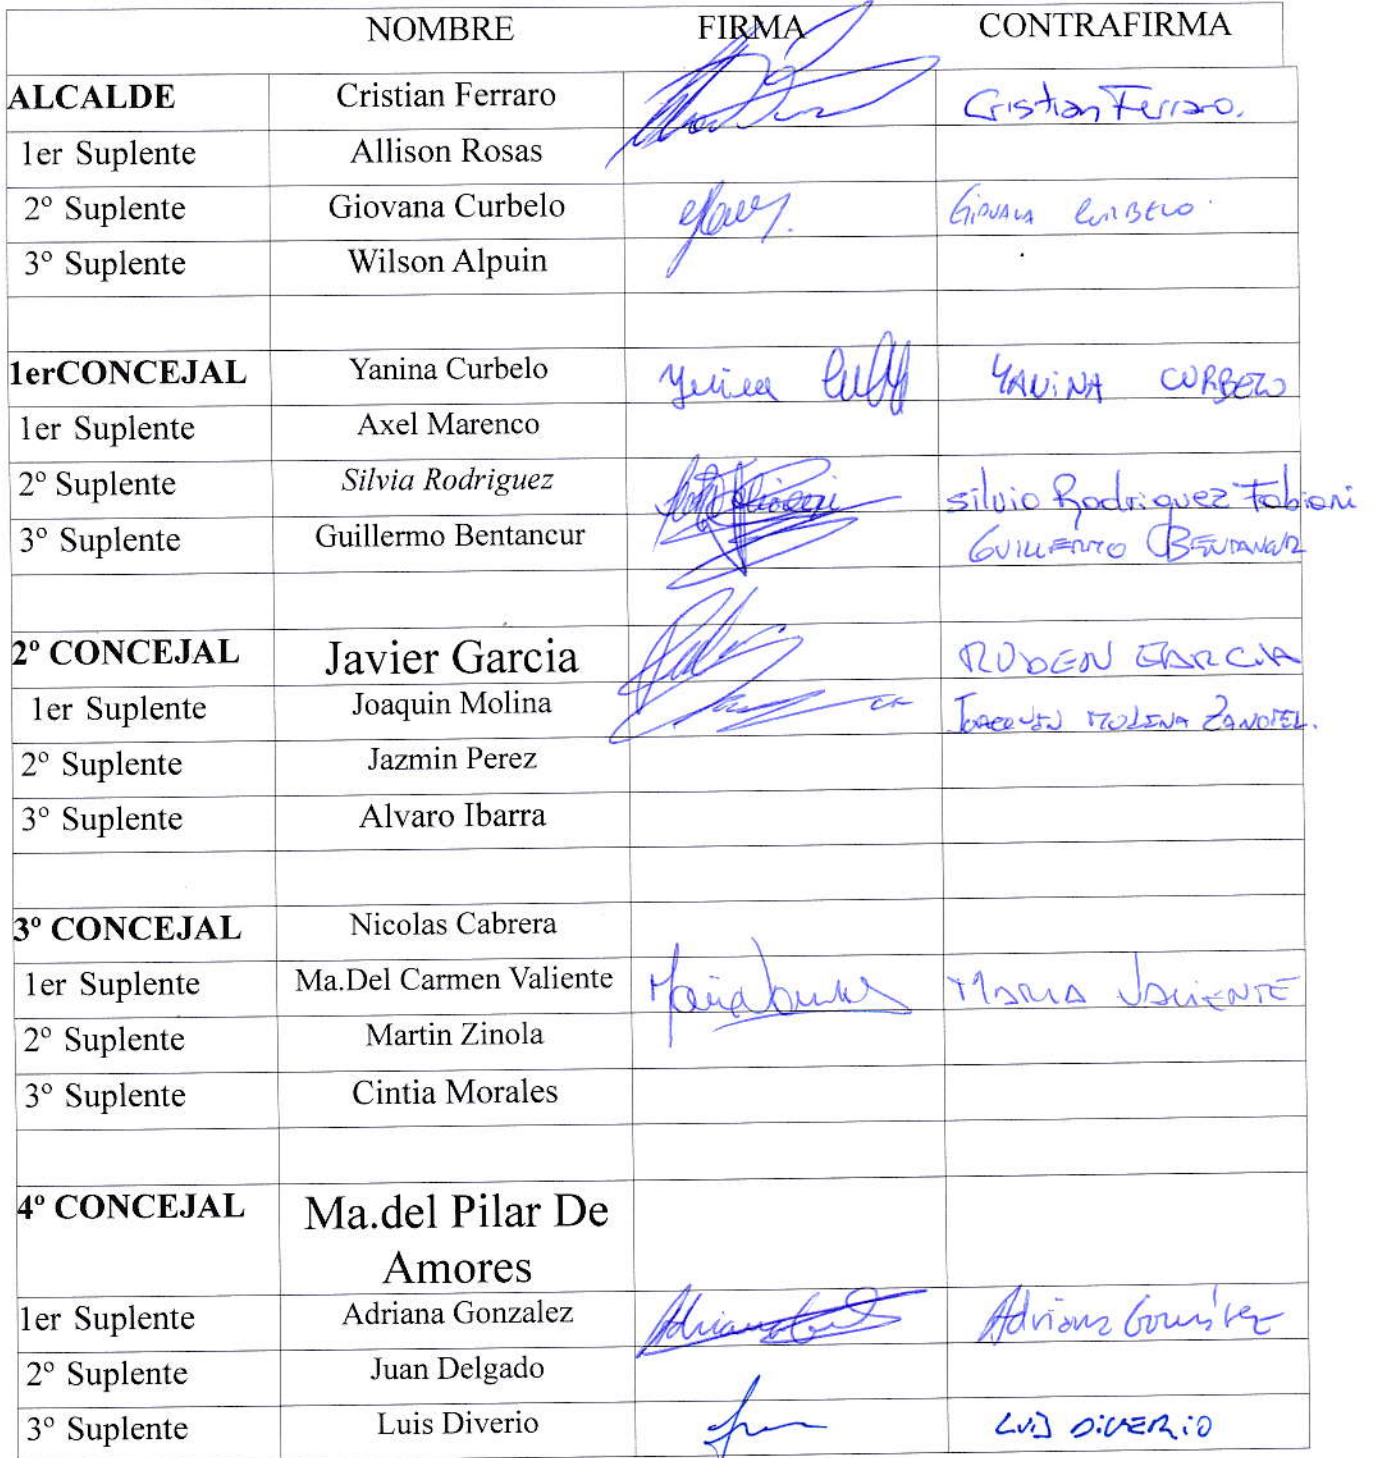 NOMBRE FIRMA CONTRAFIRMA
ALCALDE Cristian Ferraro Cristian Ferraro.
1er Suplente Allison Rosas
2º Suplente Giovana Curbelo Giovana Curbelo.
3º Suplente Wilson Alpuin
1erCONCEJAL Yanina Curbelo YANINA CURBELO
1er Suplente Axel Marenco
2º Suplente Silvia Rodriguez Silvia Rodriguez Fabiani
3º Suplente Guillermo Bentancur GUILLERMO BENTANCUR
2º CONCEJAL Javier Garcia RUBEN GARCIA
1er Suplente Joaquin Molina JOAQUIN MOLINA
2º Suplente Jazmin Perez
3º Suplente Alvaro Ibarra
3º CONCEJAL Nicolas Cabrera
1er Suplente Ma.Del Carmen Valiente MARIA VALIENTE
2º Suplente Martin Zinola
3º Suplente Cintia Morales
4º CONCEJAL Ma.del Pilar De
Amores
1er Suplente Adriana Gonzalez Adriana González
2º Suplente Juan Delgado
3º Suplente Luis Diverio LUIS DiVERiO